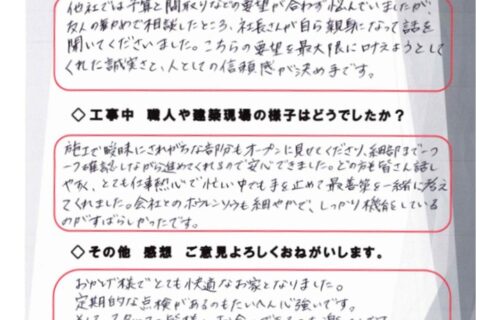 他社では予算と間取りなどの要望が合わず悩んでいましたが、
友人の勧めで相談したところ、社長さんが自ら親身になって話を
聞いてくださいました。こちらの要望を最大限に叶えようとして
くれた誠実さと、人としての信頼感が決め手です。
◇工事中 職人や建築現場の様子はどうでしたか？
施工で曖昧にされがちな部分もオープンに見せてくださり、細部まで一つ
一つ確認しながら進めてくれるので安心できました。どの方も皆さん話し
やすく、とても仕事熱心で忙しい中でも手を止めて最善策を一緒に考え
てくれました。会社とのホウレンソウも細やかで、しっかり機能をしている
のがすばらしかったです。
◇その他 感想 ご意見よろしくおねがいします。
おかげ様でとても快適なお家となりました。
定期的な点検があるのもたいへん心強いです。